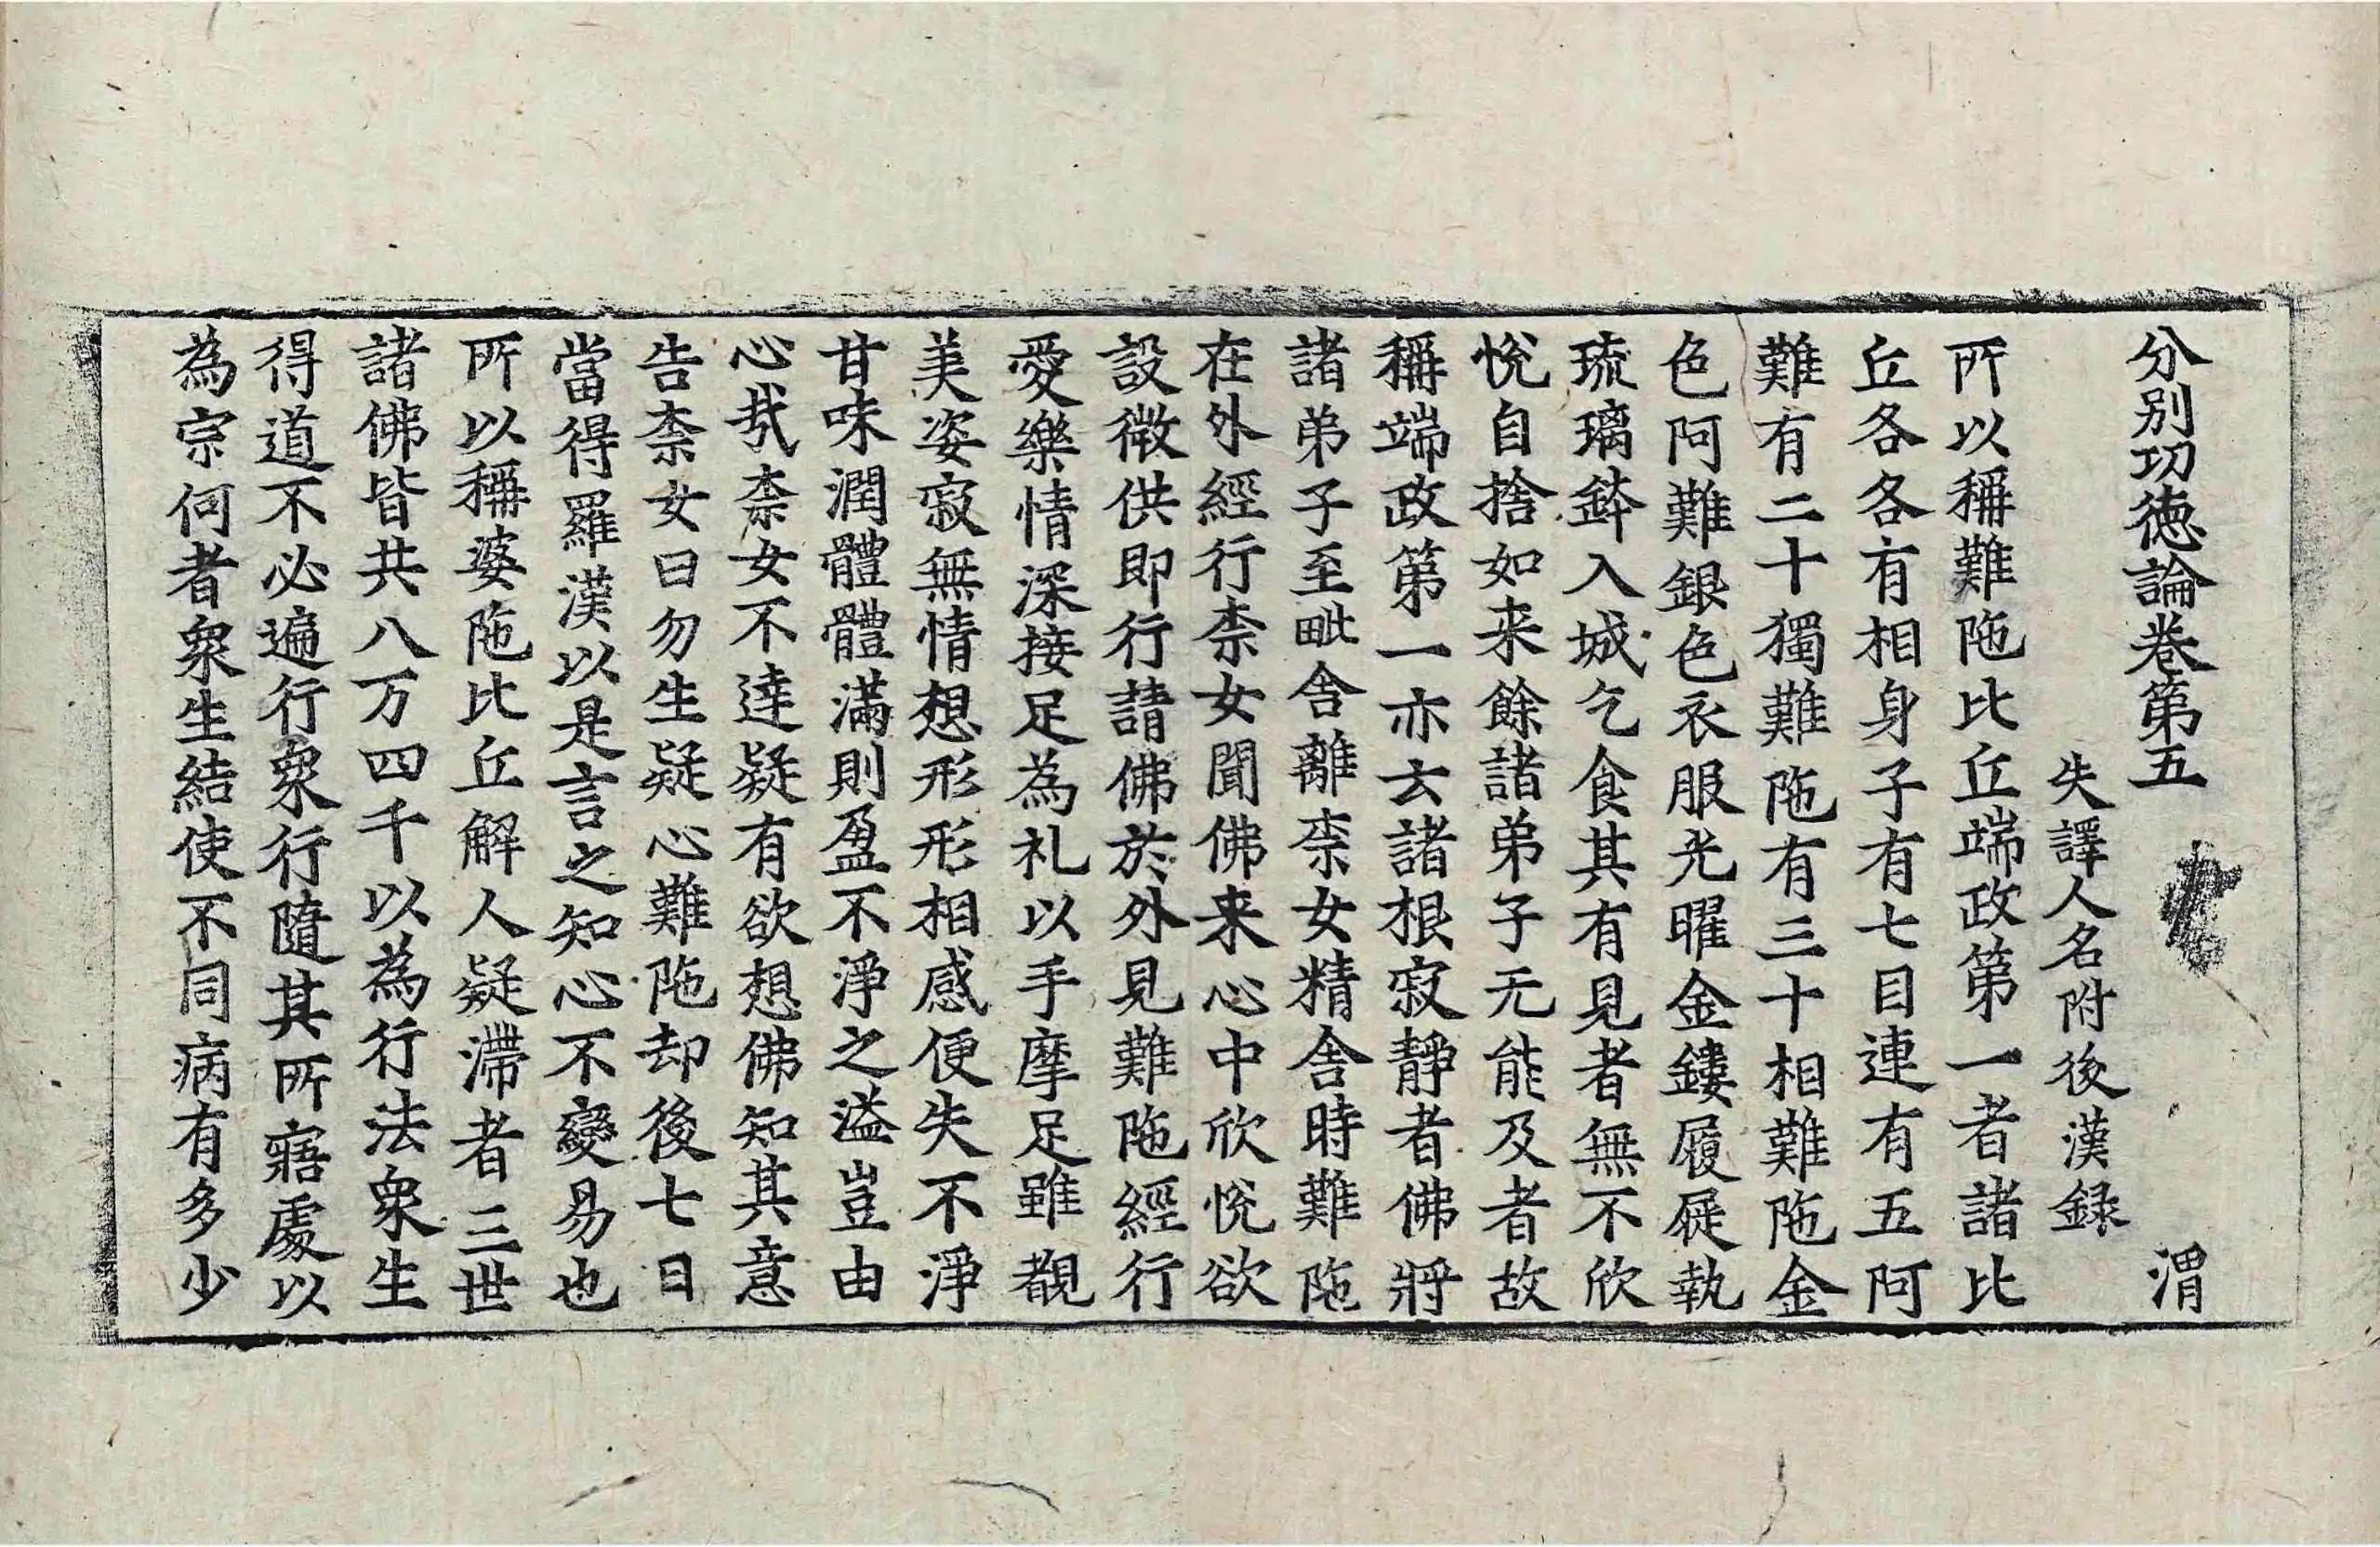 分別功德論卷第五 渭
失譯人名附後漢録
所以稱難陁比丘端政第一者諸比
丘各各有相身子有七目連有五阿
難有二十獨難陁有三十相難陁金
色阿難銀色衣服光曜金鏤履屣執
琉璃鉢入城乞食其有見者無不欣
悅自捨如来餘諸弟子无能及者故
稱端政第一亦云諸根寂靜者佛將
諸弟子至毗舍離柰女精舍時難陁
在外經行柰女聞佛来心中欣悅欲
設微供即行請佛於外見難陁經行
愛樂情深接足為礼以手摩足雖覩
美姿寂無情想形形相感便失不淨
甘味潤體體滿則盈不淨之溢豈由
心哉柰女不達疑有欲想佛知其意
告柰女曰勿生疑心難陁却後七日
當得羅漢以是言之知心不變易也
所以稱婆陁比丘解人疑滯者三世
諸佛皆共八万四千以為行法衆生
得道不必遍行衆行隨其所寤處以
為宗何者衆生結使不同病有多少